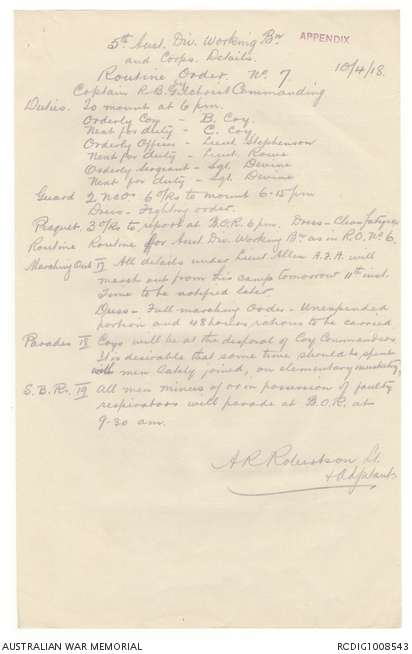 5th Aust. Div. Working Bn
APPENDIX
and Corps. Details.
Routine Order. No 7.
10/4/18.
Captain R.B. Gilchrist Commanding
Duties. To mount at 6 pm.
Orderly Coy - B. Coy.
Next for duty - C. Coy
Orderly Officer - Lieut Stephenson
Next for duty - Lieut. Rowe
Orderly Sergeant - Sgt. Devine
Next for duty - Sgt. Devine
Guard 2 NCOs 6 O/Rs to mount 6-15 pm
Dress - Fighting order.
Picquet. 3 O/Rs to report at B.O.R. 6 pm. Dress - Clean fatigues
Routine Routine for Aust. Div. Working Bn as in R.O. No 6.
Marching Out 17 All details under Lieut Allen A.F.A. will
march out from this camp tomorrow 11th inst.
Time to be notified later.
Dress - Full marching order - Unexpended
portion and 48 hours rations to be carried
Parades 18 Coys will be at the disposal of Coy Commanders
It is desirable that some time should be spent
with men lately joined, on elementary musketry.
S.B.Rs. 19 All men minus of or in possession of faulty
respirators will parade at B.O.R. at
9-30 am.
A R Robertson Lt.
+ Adjutant
AUSTRALIAN WAR MEMORIAL
RCDIG1008543